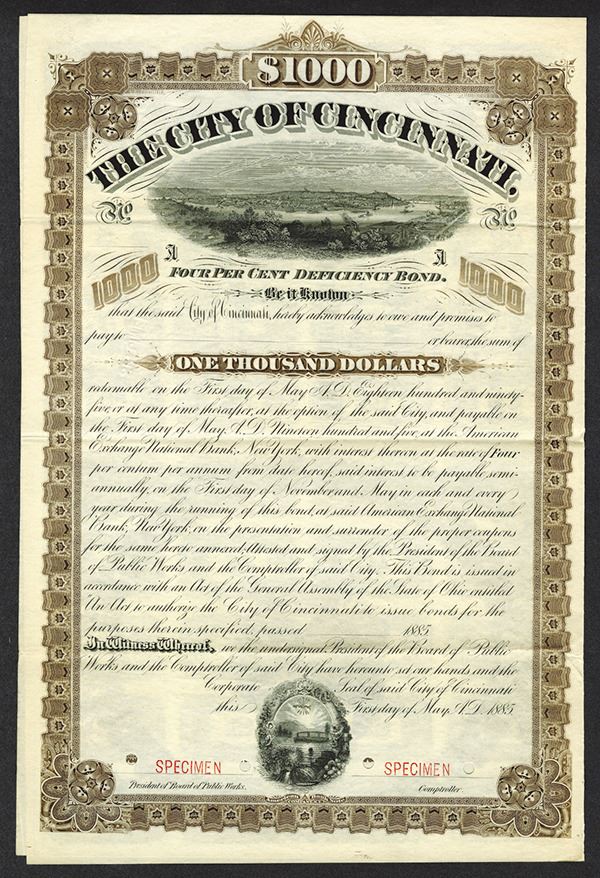 $1000
THE CITY OF CINCINNATI.
No No
A A
1000 FOUR PER CENT DEFICIENCY BOND. 1000
Be it Known
that the said City of Cincinnati, hereby acknowledges to owe and promises to
pay to or bearer, the sum of
ONE THOUSAND DOLLARS
redeemable on the First day of May A.D. Eighteen hundred and ninety-
five or at any time thereafter, at the option of the said City, and payable on
the First day of May, A.D. Nineteen hundred and five, at the American
Exchange National Bank, New York, with interest thereon at the rate of Four
per centum per annum from date hereof, said interest to be payable semi-
annually, on the First day of November and May in each and every
year during the running of this bond, at said American Exchange National
Bank, New York, on the presentation and surrender of the proper coupons
for the same hereto annexed, attested and signed by the President of the Board
of Public Works and the Comptroller of said City. This Bond is issued in
accordance with an Act of the General Assembly of the State of Ohio entitled
An Act to authorize the City of Cincinnati to issue bonds for the
purposes therein specified, passed 1885
In Witness Whereof, we the undersigned President of the Board of Public
Works and the Comptroller of said City have hereunto set our hands and the
Corporate Seal of said City of Cincinnati
this First day of May, A.D. 1885
SPECIMEN SPECIMEN
President of Board of Public Works. Comptroller.